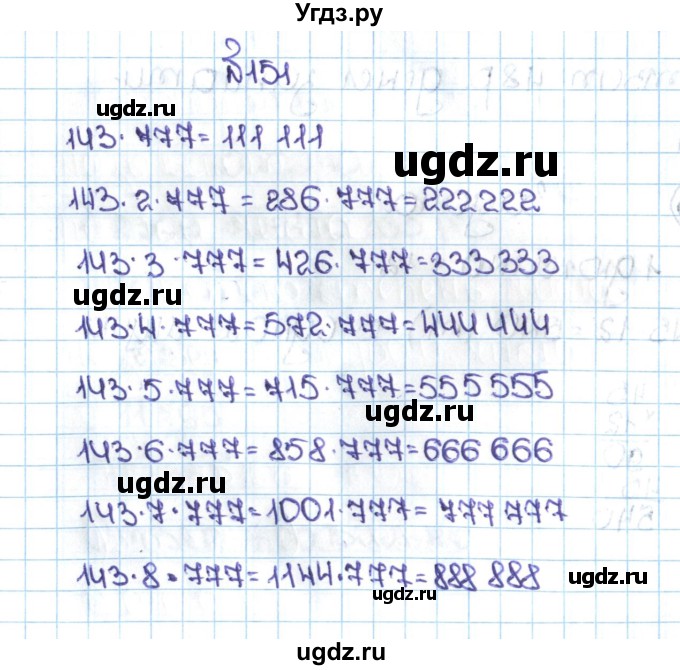 Угдз.ру
№151
ugdz.ru
143 · 777 = 111 111
ugdz.ru
143 · 2 · 777 = 286 · 777 = 222 222
143 · 3 · 777 = 426 · 777 = 333 333
ugdz.ru
143 · 4 · 777 = 572 · 777 = 444 444
143 · 5 · 777 = 715 · 777 = 555 555
ugdz.ru
143 · 6 · 777 = 858 · 777 = 666 666
ugdz.ru
143 · 7 · 777 = 1001 · 777 = 777 777
143 · 8 · 777 = 1144 · 777 = 888 888
ugdz.ru
ugdz.ru
ugdz.ru